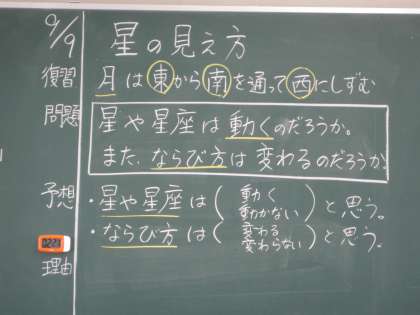 9/9 星の見え方
復習 月は東から南を通って西にしずむ
問題 星や星座は動くのだろうか。
また、ならび方は変わるのだろうか。
予想 ・星や星座は(動く
動かない)と思う。
・ならび方は(変わる
変わらない)と思う。
理由